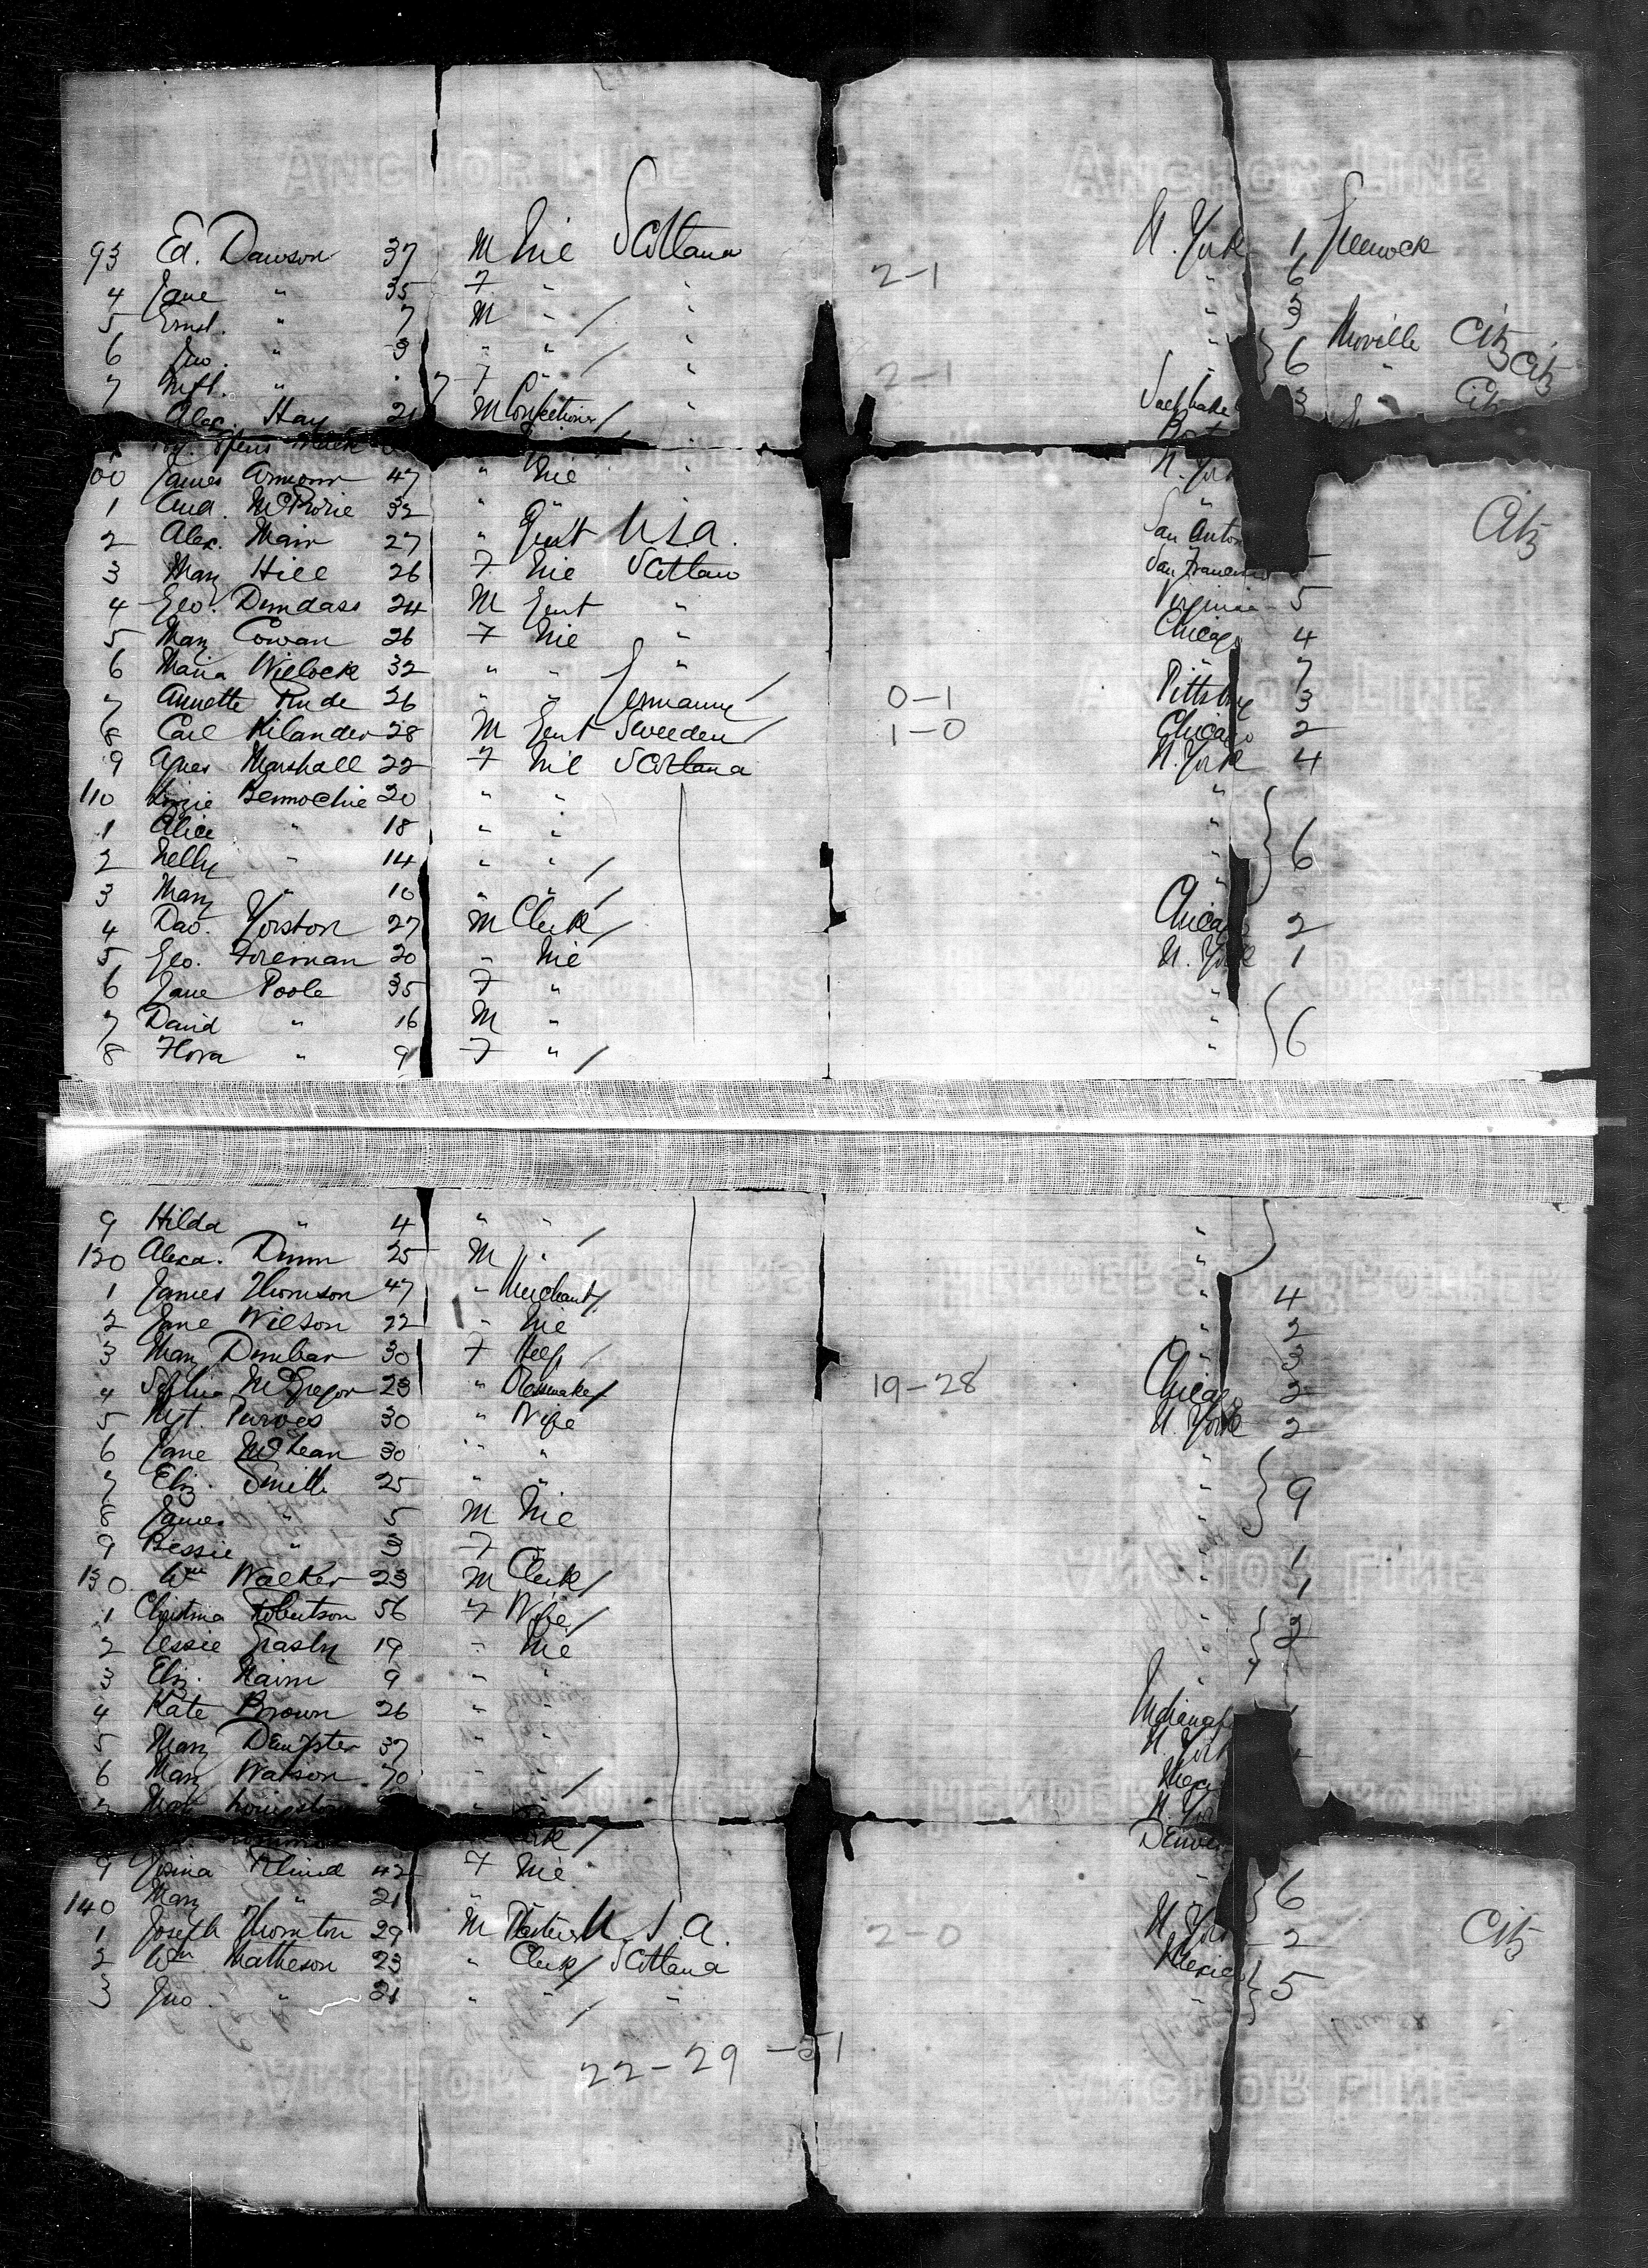 93 Ed. Dawson 37 M Nie Scotland N. York 1 Greenock
4 Jane " 35 F " " 2-1 " 6
5 Ernst. " 7 M " / " " 3
6 Jno. " 3 " " / " " 6 Moville Citz
7 Inft. " F " " 2-1 " " Citz
Alex. Hay 21 M Confectioner / " Salt Lake 3 " Citz
00 James 47 " Nie " N. York
1 And. 32 " " "
2 Alex. Main 27 " Gent U.S.A. San Anton Citz
3 Mary Hill 26 F Nie Scotland San Francisco
4 Geo. Dundass 24 M Gent " Virginia 5
5 Mary Cowan 26 F Nie " Chicago 4
6 Maria Willock 32 " " " " 7
7 Annette Rude 26 " " Germany / 0-1 Pittsburg 3
8 Carl Kilander 28 M Gent Sweeden / 1-0 Chicago 2
9 Agnes Marshall 22 F Nie Scotland N. York 4
110 Lizzie Bennochie 20 " " "
1 Alice " 18 " " " 6
2 Nelly " 14 " " / "
3 Mary " 10 " " / "
4 Dav. Yorston 27 M Clerk / Chicago 2
5 Geo. Foreman 20 " Nie N. York 1
6 Jane Poole 35 F " "
7 David " 16 M " " 6
8 Flora " 9 F " / "
9 Hilda " 4 " " / "
120 Alexa. Dunn 25 M " "
1 James Thomson 47 " Merchant / " 4
2 Jane Wilson 22 " Nie " 2
3 Mary Dunbar 30 F Help / " 3
4 Sophia McGregor 23 " Dressmaker / 19-28 Chicago 2
5 Mgt. Purves 30 " Wife N. York 2
6 Jane McLean 30 " " "
7 Eliz. Smith 25 " " " 9
8 James " 5 M Nie "
9 Bessie " 3 F " " 1
130 Wm Walker 23 M Clerk / " 1
1 Christina Robertson 56 F Wife / "
2 Jessie 19 " Nie "
3 Eliz. Nairn 9 " " "
4 Kate Brown 26 " " Indianap
5 Mary Dempster 37 " " N. York
6 Mary Watson 70 " " / "
7 Livingston " N. York
Denver
9 Rhind 42 F Nie "
140 Mary " 21 " " " 6
1 Joseph Thornton 29 M U.S.A. 2-0 N. York 2 Citz
2 Wm Matheson 23 " Clerk / Scotland Mexico
3 Jno. " 21 " " / " " 5
22-29-51